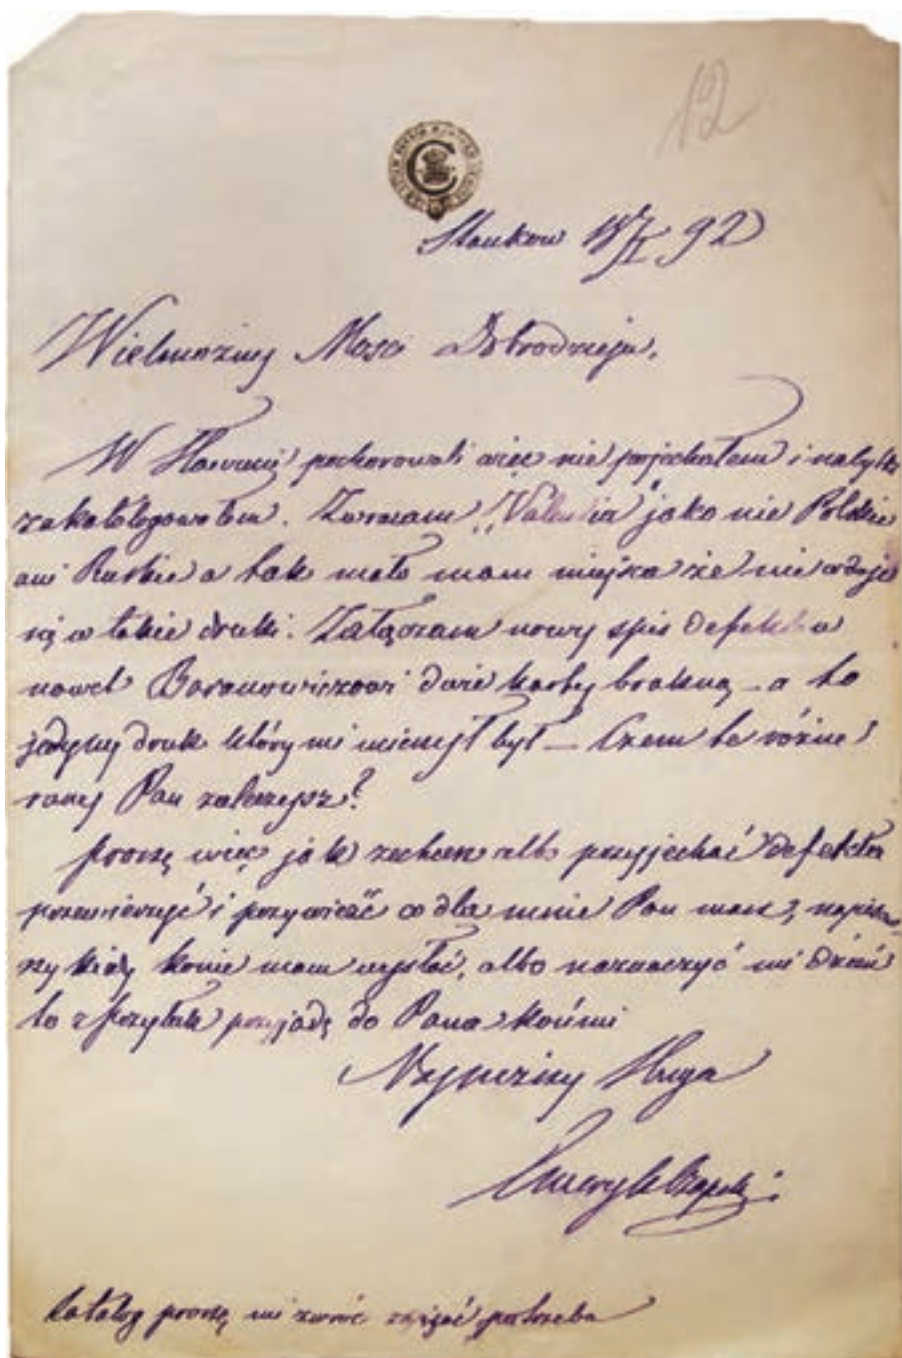 12
C
Stankow 18/X 92
Wielmożny Mości Dobrodzieju,
W pochorowali więc nie pojechałem i
zakatalogowałem. Zwracam jako nie Polskie
ani Ruskie a tak mało mam miejsca że nie wdaję
się w takie druki. Załączam nowy spis defektów
nawet Baranowiczowi dwie karty brakuje - a to
jedyny druk który mi był - Czem te różne
rany Pan zaleczysz?
Proszę więc jak zechcesz albo przyjechać defekta
i przywieźć co dla mnie Pan masz,
kiedy konie mam wysłać, albo naznaczyć mi dzień
to z przyjadę do Pana końmi
Najniższy Sługa
Emeryk Czapski
Katalog proszę mi zwrócić potrzeba